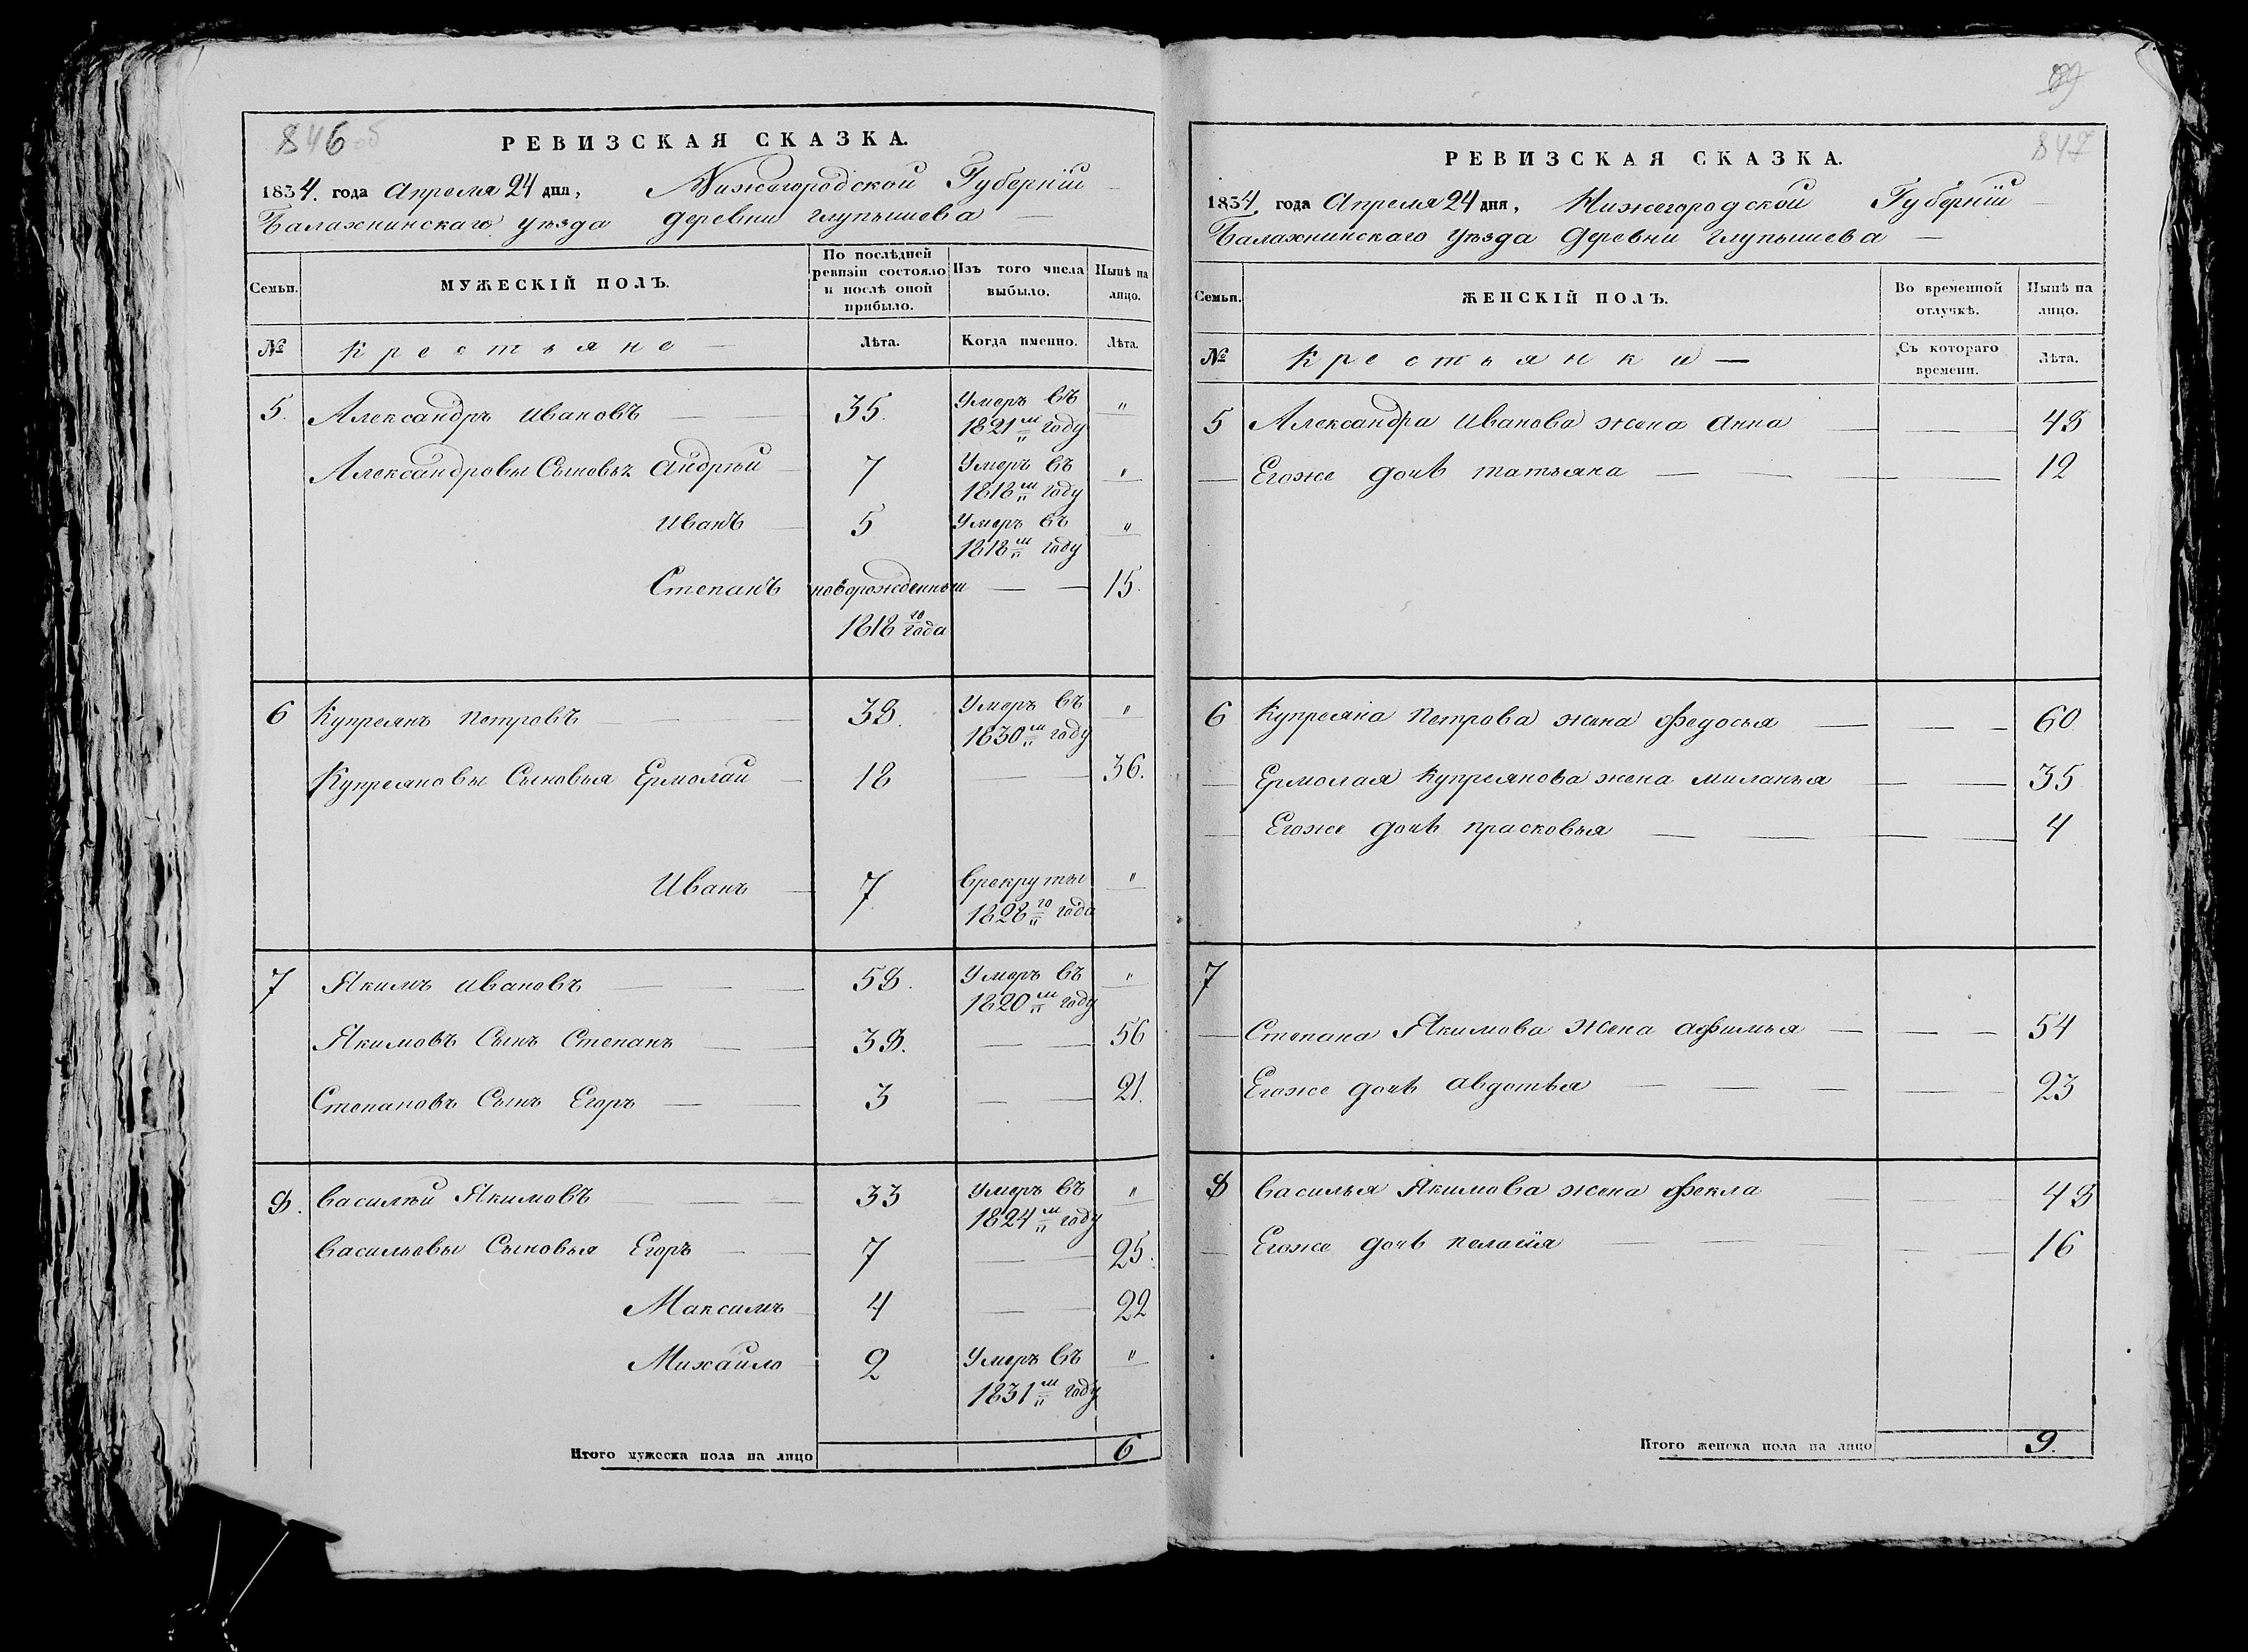 846 об
РЕВИЗСКАЯ СКАЗКА.
1834. года Апреля 24 дня, Нижегородской Губернiи
Балахнинскаго уѣзда деревни Глупышева
Семьи. МУЖЕСКIЙ ПОЛЪ. По послѣдней ревизiи состояло и послѣ оной прибыло. Изъ того числа выбыло. Нынѣ на лицо.
№ Крестьяне Лѣта. Когда именно. Лѣта.
5. Александръ Ивановъ 35. Умеръ въ 1821м году "
Александровы Сыновья Андрѣй 7 Умеръ въ 1818м году "
Иванъ 5 Умеръ въ 1818м году "
Степанъ новорожденный 1818го года 15.
6 Купреянъ Петровъ 38. Умеръ въ 1830м году "
Купреяновы Сыновья Ермолай 18 36.
Иванъ 7 Врекруты 1828го года "
7 Якимъ Ивановъ 58. Умеръ въ 1820м году "
Якимовъ Сынъ Степанъ 38. 56
Степановъ Сынъ Егоръ 3 21.
8. Василѣй Якимовъ 33 Умеръ въ 1824м году "
Васильевы Сыновья Егоръ 7 25.
Максимъ 4 22
Михайло 2 Умеръ въ 1831м году "
Итого мужеска пола на лицо 6
847
РЕВИЗСКАЯ СКАЗКА.
1834 года Апреля 24 дня, Нижегородской Губернiи
Балахнинскаго уѣзда Деревни Глупышева
Семьи. ЖЕНСКIЙ ПОЛЪ. Во временной отлучкѣ. Нынѣ на лицо.
№ Крестьянки Съ котораго времени. Лѣта.
5 Александра Иванова жена Анна 48
Егоже дочь татьяна 12
6 Купреяна Петрова жена Федосья 60
Ермолая Купреянова жена миланья 35
Егоже дочь прасковья 4
7
Степана Якимова Жена афимья 54
Егоже дочь авдотья 23
8 Василья Якимова жена Фекла 48
Егоже дочь пелагiя 16
Итого женска пола на лицо 9.